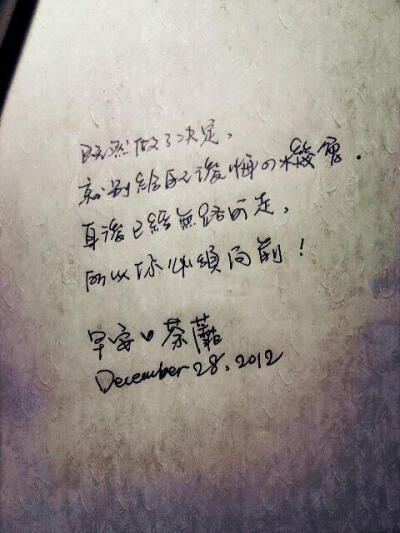 既然做了決定,
就別給自己後悔の機會.
身後已經無路可走,
所以你必須向前!
早安口茶蘼
December 28, 2012